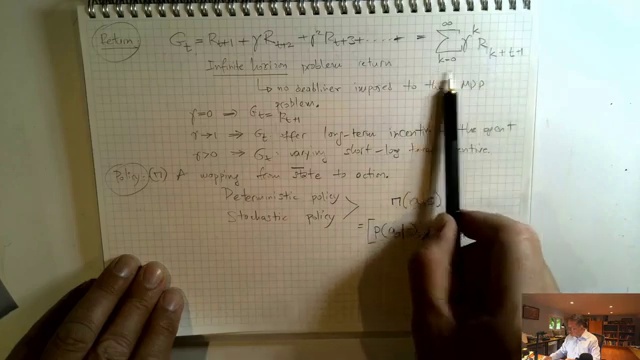 Return G_t = R_{t+1} + γ R_{t+2} + γ² R_{t+3} + ..... + = ∑_{k=0}^{∞} γ^k R_{k+t+1}
Infinite horizon problem return
↳ no deadline imposed to the MDP
problem.
γ=0 → G_t = R_{t+1}
γ→1 → G_t offer long-term incentive to the agent
γ>0 → G_t: varying short-log term incentive.
Policy: (π) A mapping from state to action.
Deterministic policy
Stochastic policy